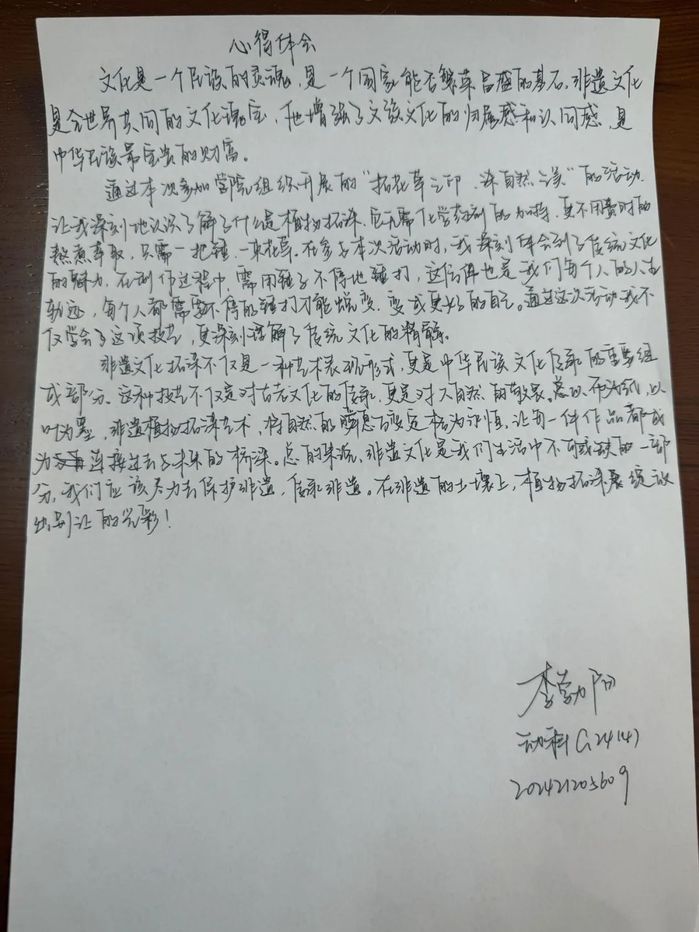 心得体会
文化是一个民族的灵魂,是一个国家能否繁荣昌盛的基石,非遗文化
是全世界共同的文化瑰宝,他增强了文族文化的归属感和认同感,是
中华民族最宝贵的财富。
通过本次参加学院组织开展的“拓花草之印,染自然之美”的活动,
让我深刻地认识了解了什么是植物拓染,它无需化学药剂的加持,更不用费时的
熬煮萃取,只需一把锤,一束花草。在参与本次活动时,我深刻体会到了传统文化
的魅力,在制作过程中,需用锤子不停地锤打,这仿佛也是我们每个人的人生
轨迹,每个人都需要不停的锤打才能蜕变,变成更好的自己。通过这次活动我不
仅学会了这项技艺,更深刻理解了传统文化的精髓。
非遗文化拓染不仅是一种艺术表现形式,更是中华民族文化传承的重要组
成部分。这种技艺不仅是对古老文化的传承,更是对大自然的敬畏。以布为纸,以
叶为墨,非遗植物拓染艺术,将自然的瞬息万变定格为永恒,让每一件作品都成
为连接过去与未来的桥梁。总的来说,非遗文化是我们生活中不可或缺的一部
分,我们应该尽力去保护非遗,传承非遗。在非遗的土壤上,植物拓染展绽放
出别让的光彩!
李
动科G24147
202421205609